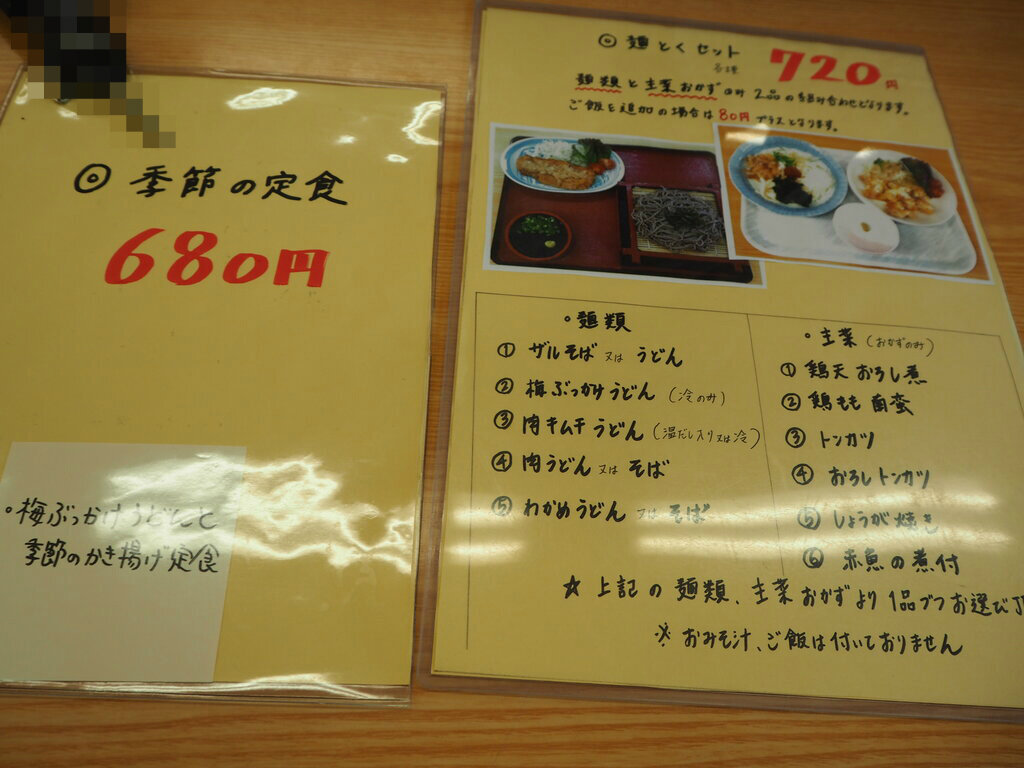 ◎ 季節の定食
680円
・梅ぶっかけうどんと
季節のかき揚げ定食
◎ 麺とくセット
各種
720円
麺類と主菜おかずのみ 2品の組み合わせとなります。
ご飯を追加の場合は80円プラスとなります。
・麺類
① ザルそば 又は うどん
② 梅ぶっかけうどん (冷のみ)
③ 肉キムチうどん (温だし入り又は冷)
④ 肉うどん 又は そば
⑤ わかめうどん 又は そば
・主菜 (おかずのみ)
① 鶏天おろし煮
② 鶏もも南蛮
③ トンカツ
④ おろしトンカツ
⑤ しょうが焼き
⑥ 赤魚の煮付
☆ 上記の麺類、主菜おかずより 1品づつお選び
※ おみそ汁、ご飯は付いておりません